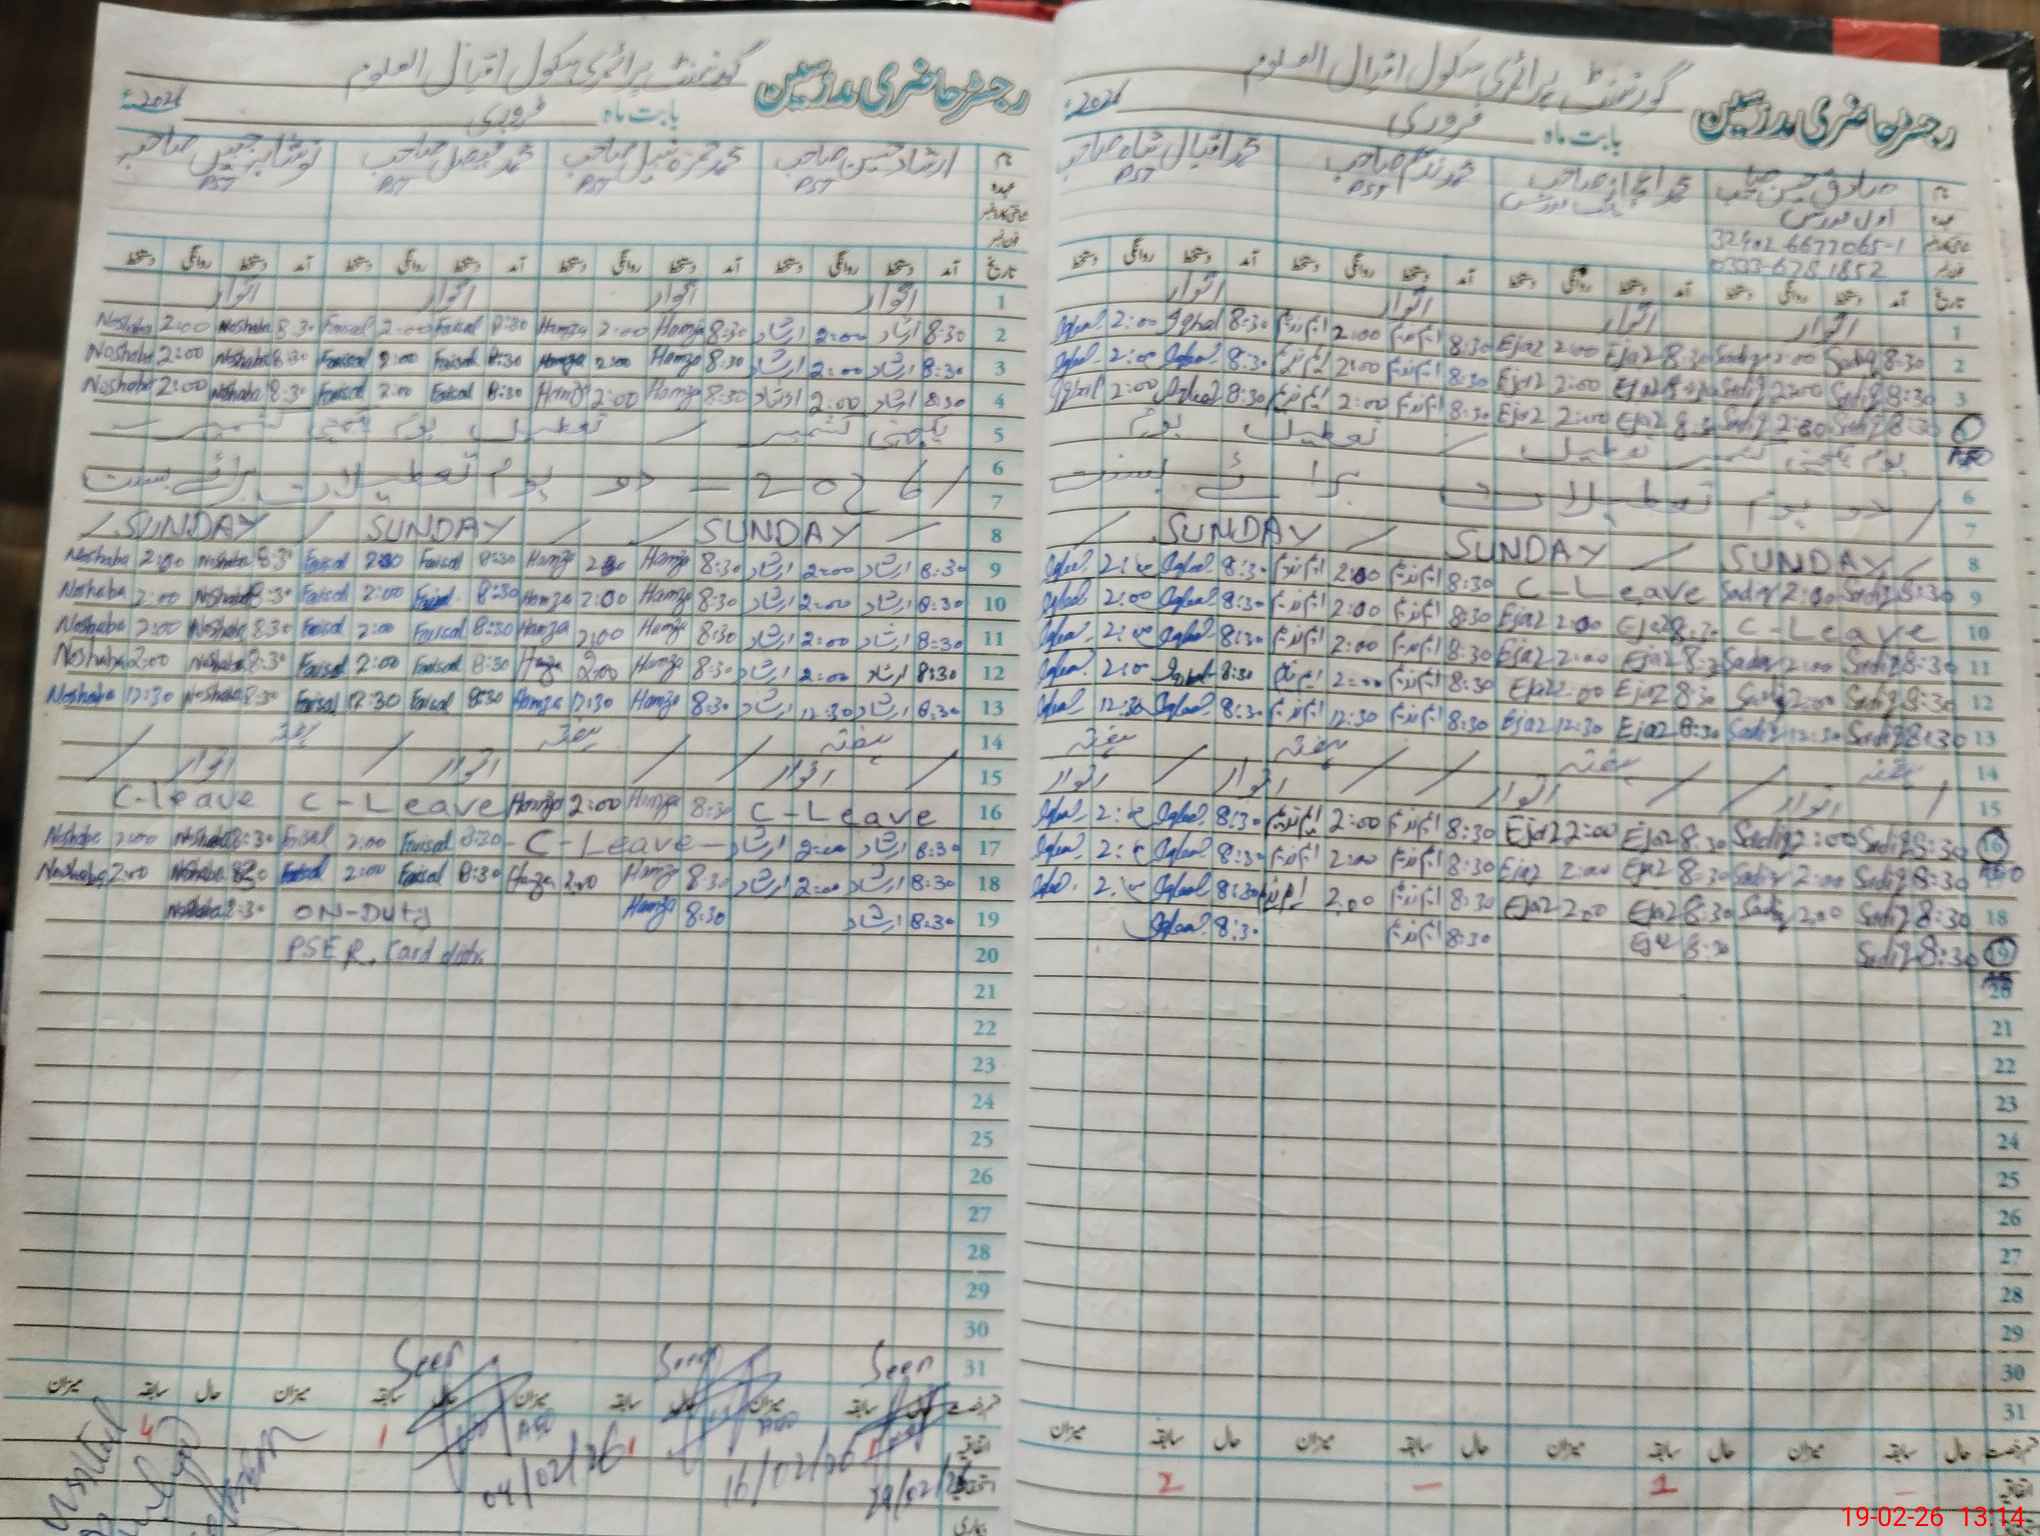 رجسٹر حاضری مدرسین گورنمنٹ پرائمری سکول اقبال العلوم
بابت ماہ فروری 2026ء
نام صادق حسین صاحب محمد اعجاز صاحب محمد ندیم صاحب محمد اقبال شاہ صاحب
عہدہ اول مدرس PST PST
32402-6677065-1
0333-6781852
تاریخ آمد دستخط روانگی دستخط آمد دستخط روانگی دستخط آمد دستخط روانگی دستخط آمد دستخط روانگی دستخط
1 اتوار اتوار اتوار اتوار
2 8:30 Sadiq 2:00 Sadiq 8:30 Ejaz 2:00 Ejaz 8:30 2:00 8:30 Iqbal 2:00 Iqbal
3 8:30 Sadiq 2:00 Sadiq Ejaz 2:00 Ejaz 8:30 2:00 8:30 Iqbal 2:00 Iqbal
4 8:30 Sadiq 2:00 Sadiq 8:30 Ejaz 2:00 Ejaz 8:30 2:00 8:30 Iqbal 2:00 Iqbal
5 یوم یکجہتی کشمیر تعطیل / تعطیل یوم
6 / دو یوم تعطیلات برائے بسنت
7
8 / SUNDAY / SUNDAY / SUNDAY /
9 8:30 Sadiq 2:00 Sadiq C-Leave 8:30 2:00 8:30 Iqbal 2:00 Iqbal
10 C-Leave 8:30 Ejaz 2:00 Ejaz 8:30 2:00 8:30 Iqbal 2:00 Iqbal
11 8:30 Sadiq 2:00 Sadiq 8:30 Ejaz 2:00 Ejaz 8:30 2:00 8:30 Iqbal 2:00 Iqbal
12 8:30 Sadiq 2:00 Sadiq 8:30 Ejaz 2:00 Ejaz 8:30 2:00 8:30 Iqbal 2:00 Iqbal
13 8:30 Sadiq 12:30 Sadiq 8:30 Ejaz 12:30 Ejaz 8:30 12:30 8:30 Iqbal 12:30 Iqbal
14 ہفتہ ہفتہ ہفتہ ہفتہ
15 / اتوار / / اتوار / / اتوار / اتوار
16 8:30 Sadiq 2:00 Sadiq 8:30 Ejaz 2:00 Ejaz 8:30 2:00 8:30 Iqbal 2:00 Iqbal
17 8:30 Sadiq 2:00 Sadiq 8:30 Ejaz 2:00 Ejaz 8:30 2:00 8:30 Iqbal 2:00 Iqbal
18 8:30 Sadiq 2:00 Sadiq 8:30 Ejaz 2:00 Ejaz 8:30 2:00 8:30 Iqbal 2:00 Iqbal
19 8:30 Sadiq 8:30 Ejaz 8:30 8:30 Iqbal
20
21
22
23
24
25
26
27
28
29
30
31
حال سابقہ میزان حال سابقہ میزان حال سابقہ میزان حال سابقہ میزان
اتفاقیہ – 1 – 2
رجسٹر حاضری مدرسین گورنمنٹ پرائمری سکول اقبال العلوم
بابت ماہ فروری 2026ء
نام ارشاد حسین صاحب محمد حمزہ صاحب محمد فیصل صاحب نوشابہ صاحبہ
عہدہ PST PST PST PST
تاریخ آمد دستخط روانگی دستخط آمد دستخط روانگی دستخط آمد دستخط روانگی دستخط آمد دستخط روانگی دستخط
1 اتوار اتوار اتوار اتوار
2 8:30 ارشاد 2:00 ارشاد 8:30 Hamza 2:00 Hamza 8:30 Faisal 2:00 Faisal 8:30 Noshaba 2:00 Noshaba
3 8:30 ارشاد 2:00 ارشاد 8:30 Hamza 2:00 Hamza 8:30 Faisal 2:00 Faisal 8:30 Noshaba 2:00 Noshaba
4 8:30 ارشاد 2:00 ارشاد 8:30 Hamza 2:00 Hamza 8:30 Faisal 2:00 Faisal 8:30 Noshaba 2:00 Noshaba
5 یکجہتی کشمیر / تعطیل یوم یکجہتی کشمیر
6 / 2026 – دو یوم تعطیلات برائے بسنت
7
8 / SUNDAY / / SUNDAY / SUNDAY /
9 8:30 ارشاد 2:00 ارشاد 8:30 Hamza 2:00 Hamza 8:30 Faisal 2:00 Faisal 8:30 Noshaba 2:00 Noshaba
10 8:30 ارشاد 2:00 ارشاد 8:30 Hamza 2:00 Hamza 8:30 Faisal 2:00 Faisal 8:30 Noshaba 2:00 Noshaba
11 8:30 ارشاد 2:00 ارشاد 8:30 Hamza 2:00 Hamza 8:30 Faisal 2:00 Faisal 8:30 Noshaba 2:00 Noshaba
12 8:30 ارشاد 2:00 ارشاد 8:30 Hamza 2:00 Hamza 8:30 Faisal 2:00 Faisal 8:30 Noshaba 2:00 Noshaba
13 8:30 ارشاد 12:30 ارشاد 8:30 Hamza 12:30 Hamza 8:30 Faisal 12:30 Faisal 8:30 Noshaba 12:30 Noshaba
14 ہفتہ / ہفتہ / ہفتہ /
15 / اتوار / / اتوار / اتوار /
16 C-Leave 8:30 Hamza 2:00 Hamza C-Leave C-Leave
17 8:30 ارشاد 2:00 ارشاد - C-Leave - 8:30 Faisal 2:00 Faisal 8:30 Noshaba 2:00 Noshaba
18 8:30 ارشاد 2:00 ارشاد 8:30 Hamza 2:00 Hamza 8:30 Faisal 2:00 Faisal 8:30 Noshaba 2:00 Noshaba
19 8:30 ارشاد 8:30 Hamza ON-Duty 8:30 Noshaba
20 PSER. Card distr.
21
22
23
24
25
26
27
28
29
30
31
Seen Seen Seen
حال سابقہ میزان حال سابقہ میزان حال سابقہ میزان حال سابقہ میزان
اتفاقیہ 1 1 1 4
AEO AEO
04/02/26 16/02/26
visited
19-02-26 13:14